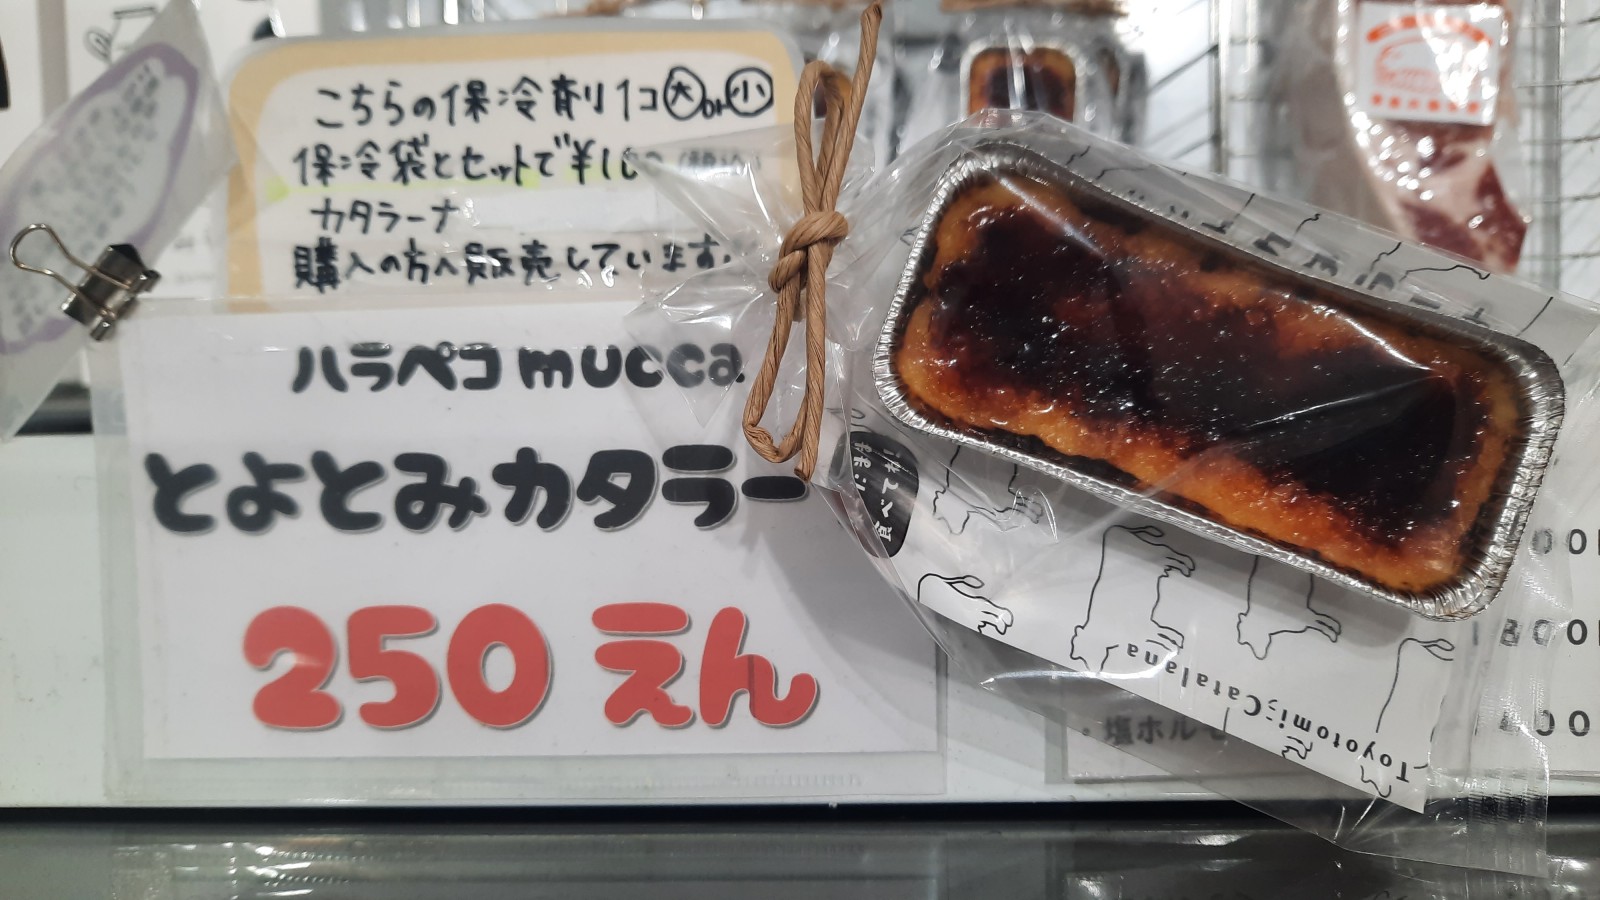 こちらの保冷剤1コ大or小
保冷袋とセットで¥1
カタラーナ
購入の方へ販売しています。
ハラペコmucca
とよとみカタラー
250えん
Toyotomi;Catalana
塩ホル